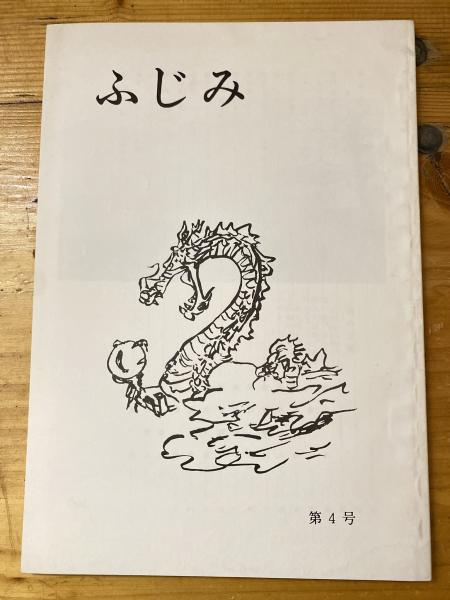 ふじみ
第4号